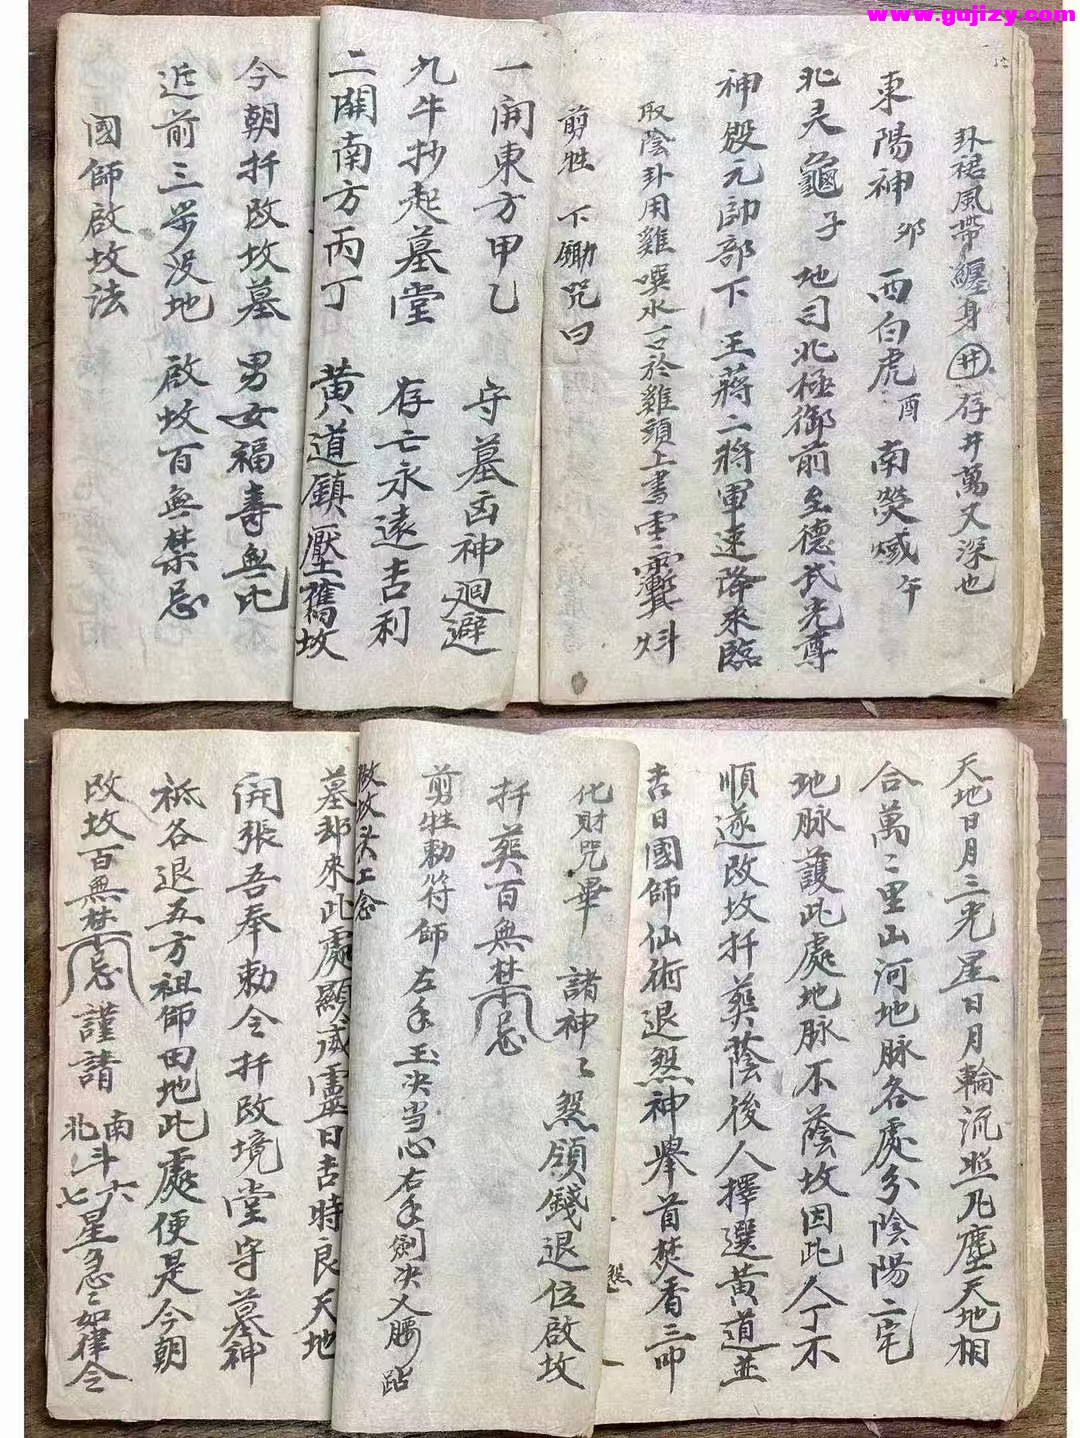 www.gujizy.com
卦裙風帶纏身井存井萬丈深也
東陽神卯 西白虎酉 南熒惑午
北灵龜子 地司北極御前至德武光尊
神殷元帥部下王蔣二將軍速降來臨
取陰卦用雞噀水一口於雞頭上書
剪牲 下鋤咒曰
一開東方甲乙 守墓凶神迴避
九牛抄起墓堂 存亡永遠吉利
二開南方丙丁 黄道鎮壓舊坟
今朝扦改坟墓 男女福壽無比
近前三步没地 啟坟百無禁忌
國師啟坟法
天地日月三光星日月輪流照凡塵天地相
合萬〻里山河地脉各處分陰陽二宅
地脉護此處地脉不蔭坟因此人丁不
順遂改坟扦葬蔭後人擇選黄道並
吉日國師仙術退煞神舉首焚香三叩
煞
化財咒畢 諸神〻煞領錢退位啟坟
扦葬百無禁忌
剪牲勅符師左手玉决当心右手劍决入腰跕
改坟头上念
墓部來此處顯威靈日吉時良天地
開張吾奉勅令扦改境堂守墓神
祗各退五方祖師田地此處便是今朝
改坟百無禁忌 謹請 南斗六北斗七星急〻如律令